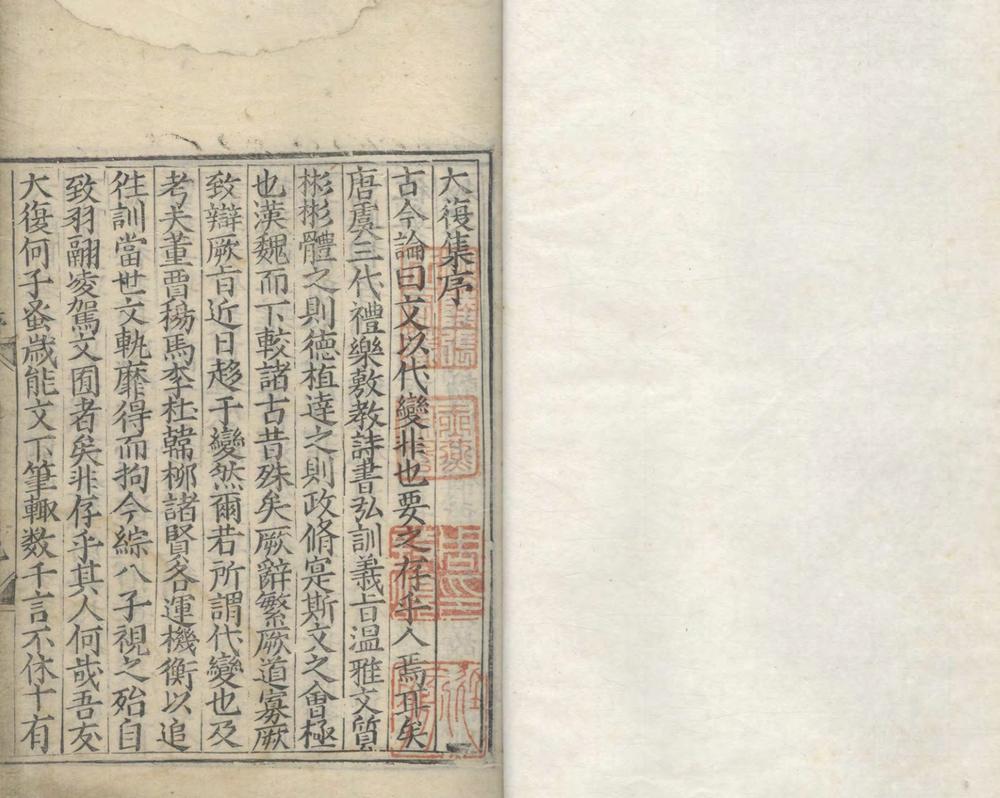 大復集序
古今論曰文以代變非也要之存乎人焉耳矣
唐虞三代禮樂敷教詩書弘訓義㫖温雅文質
彬彬體之則德植達之則政脩寔斯文之會極
也漢魏而下較諸古昔殊矣厥辭繁厥道寡厥
致辯厥㫖近日趍于變然爾若所謂代變也及
考夫董賈楊馬李杜韓柳諸賢各運機衡以追
徃訓當世文軌靡得而拘今綜八子視之殆自
致羽翮凌駕文囿者矣非存乎其人何哉吾友
大復何子蚤歲能文下筆輙数千言不休十有